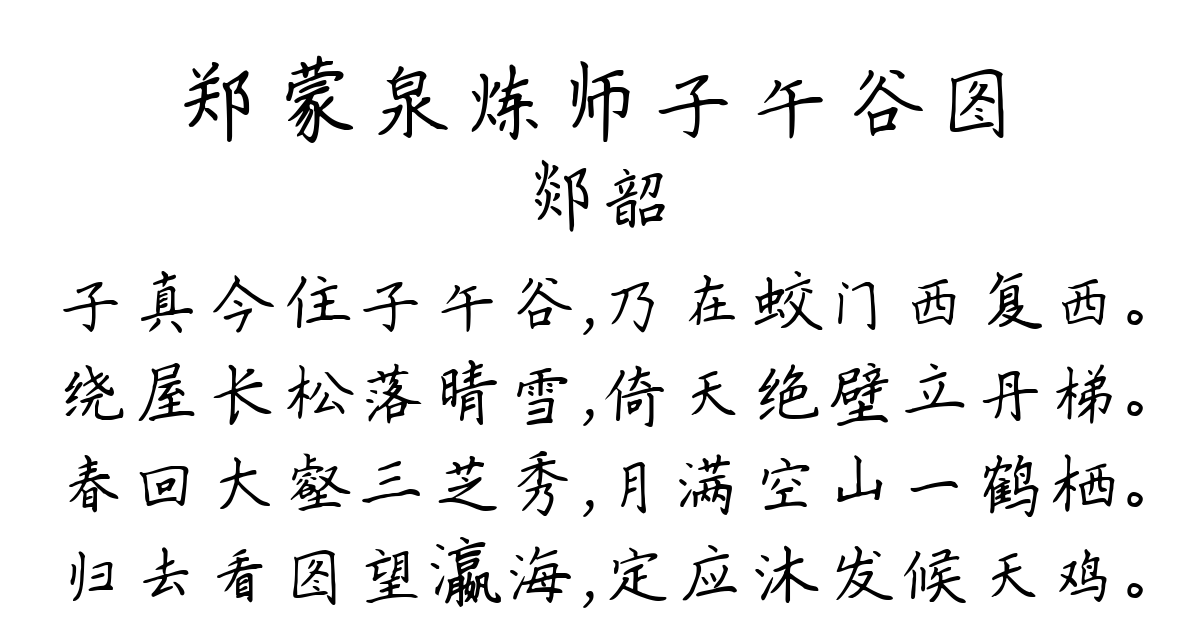 郑蒙泉炼师子午谷图
郯韶
子真今住子午谷,乃在蛟门西复西。
绕屋长松落晴雪,倚天绝壁立丹梯。
春回大壑三芝秀,月满空山一鹤栖。
归去看图望瀛海,定应沐发候天鸡。